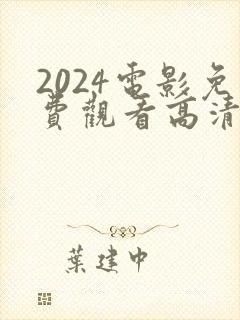 2024電影免
費觀看高清
葉建中